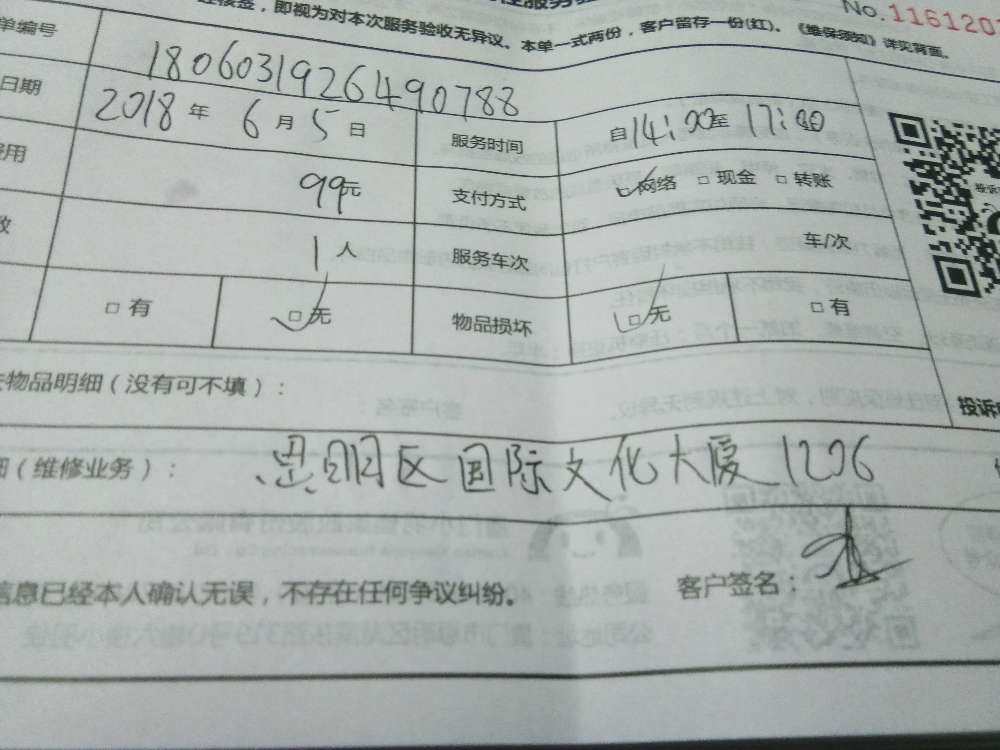 即视为对本次服务验收无异议。本单一式两份，客户留存一份(红)。《维保须知》详见背面。
No.116120
单编号 180603192649 0788
日期 2018 年 6 月 5 日 服务时间 自14:00至 17:00
费用 99元 支付方式 ☑网络 □现金 □转账
数 1 人 服务车次 车/次
□有 ☑无 物品损坏 ☑无 □有
物品明细（没有可不填）：
投诉
细（维修业务）： 思明区国际文化大厦1206
信息已经本人确认无误，不存在任何争议纠纷。 客户签名：